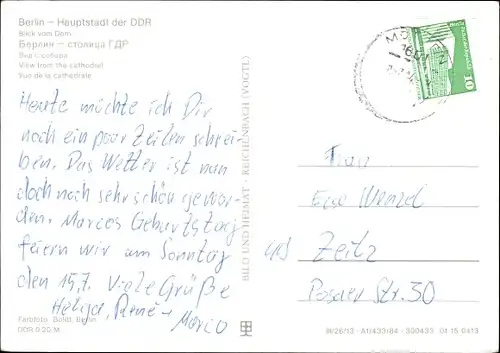 Berlin – Hauptstadt der DDR
Blick vom Dom
Берлин – столица ГДР
Вид с собора
View from the cathedral
Vue de la cathédrale
Heute möchte ich Dir
noch ein paar Zeilen schrei-
ben. Das Wetter ist nun
doch noch sehr schön gewor-
den. Marcos Geburtstag
feiern wir am Sonntag
den 15.7. Viele Grüße
Helga, René
Marco
Farbfoto: Bohlt, Berlin
DDR 0,20 M
BILD UND HEIMAT · REICHENBACH (VOGTL)
10
Frau
Wenzel
Zeitz
Str. 30
III/26/13 · A1/433/84 · 330433 01 15 0413